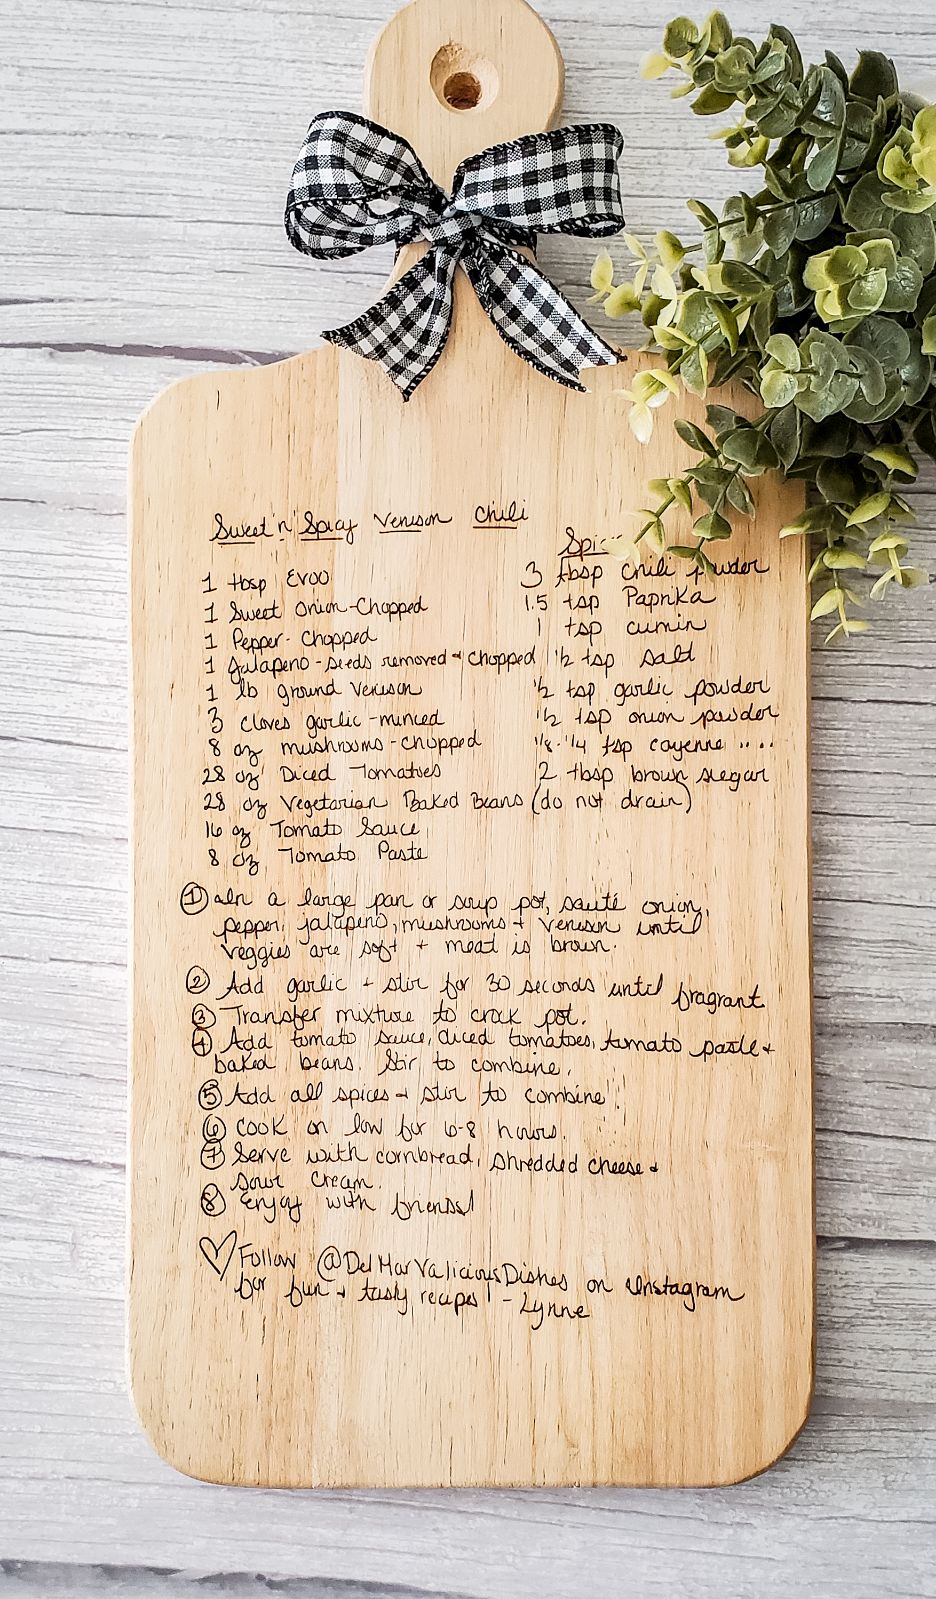 Sweet 'n' Spicy Venison Chili
1 tbsp EVOO
1 Sweet Onion - Chopped
1 Pepper - Chopped
1 Jalapeno - seeds removed + chopped
1 lb ground Venison
3 cloves garlic - minced
8 oz mushrooms - chopped
28 oz Diced Tomatoes
28 oz Vegetarian Baked Beans (do not drain)
16 oz Tomato Sauce
8 oz Tomato Paste
3 tbsp chili powder
1.5 tsp Paprika
1 tsp cumin
1/2 tsp salt
1/2 tsp garlic powder
1/2 tsp onion powder
1/8-1/4 tsp cayenne ....
2 tbsp brown sugar
① In a large pan or soup pot, sauté onion,
pepper, jalapeno, mushrooms + venison until
veggies are soft + meat is brown.
② Add garlic + stir for 30 seconds until fragrant
③ Transfer mixture to crock pot.
④ Add tomato sauce, diced tomatoes, tomato paste +
baked beans. Stir to combine.
⑤ Add all spices + stir to combine!
⑥ Cook on low for 6-8 hours.
⑦ Serve with cornbread, shredded cheese +
sour cream.
⑧ Enjoy with friends!
♡ Follow @DelMarValiciousDishes on Instagram
for fun + tasty recipes! - Lynne